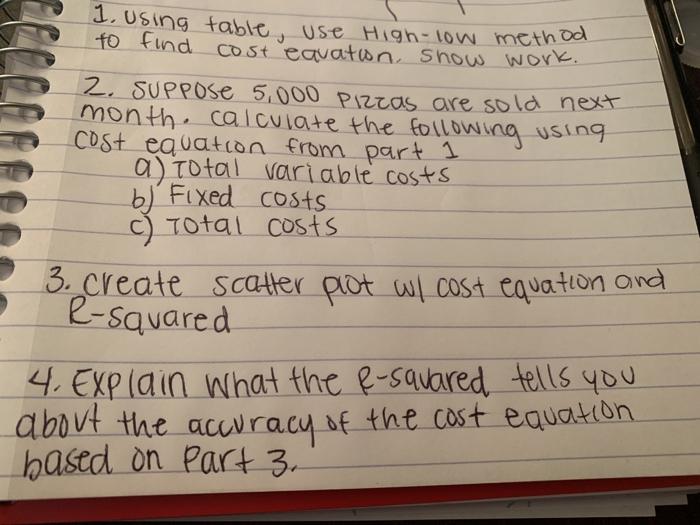 1. Using table, use High-low method
to find cost equation. Show work.
2. Suppose 5,000 pizzas are sold next
month. calculate the following using
cost equation from part 1
a) Total variable costs
b) Fixed costs
c) Total costs
3. create scatter plot w/ cost equation and
R-squared
4. Explain what the R-squared tells you
about the accuracy of the cost equation
based on Part 3.